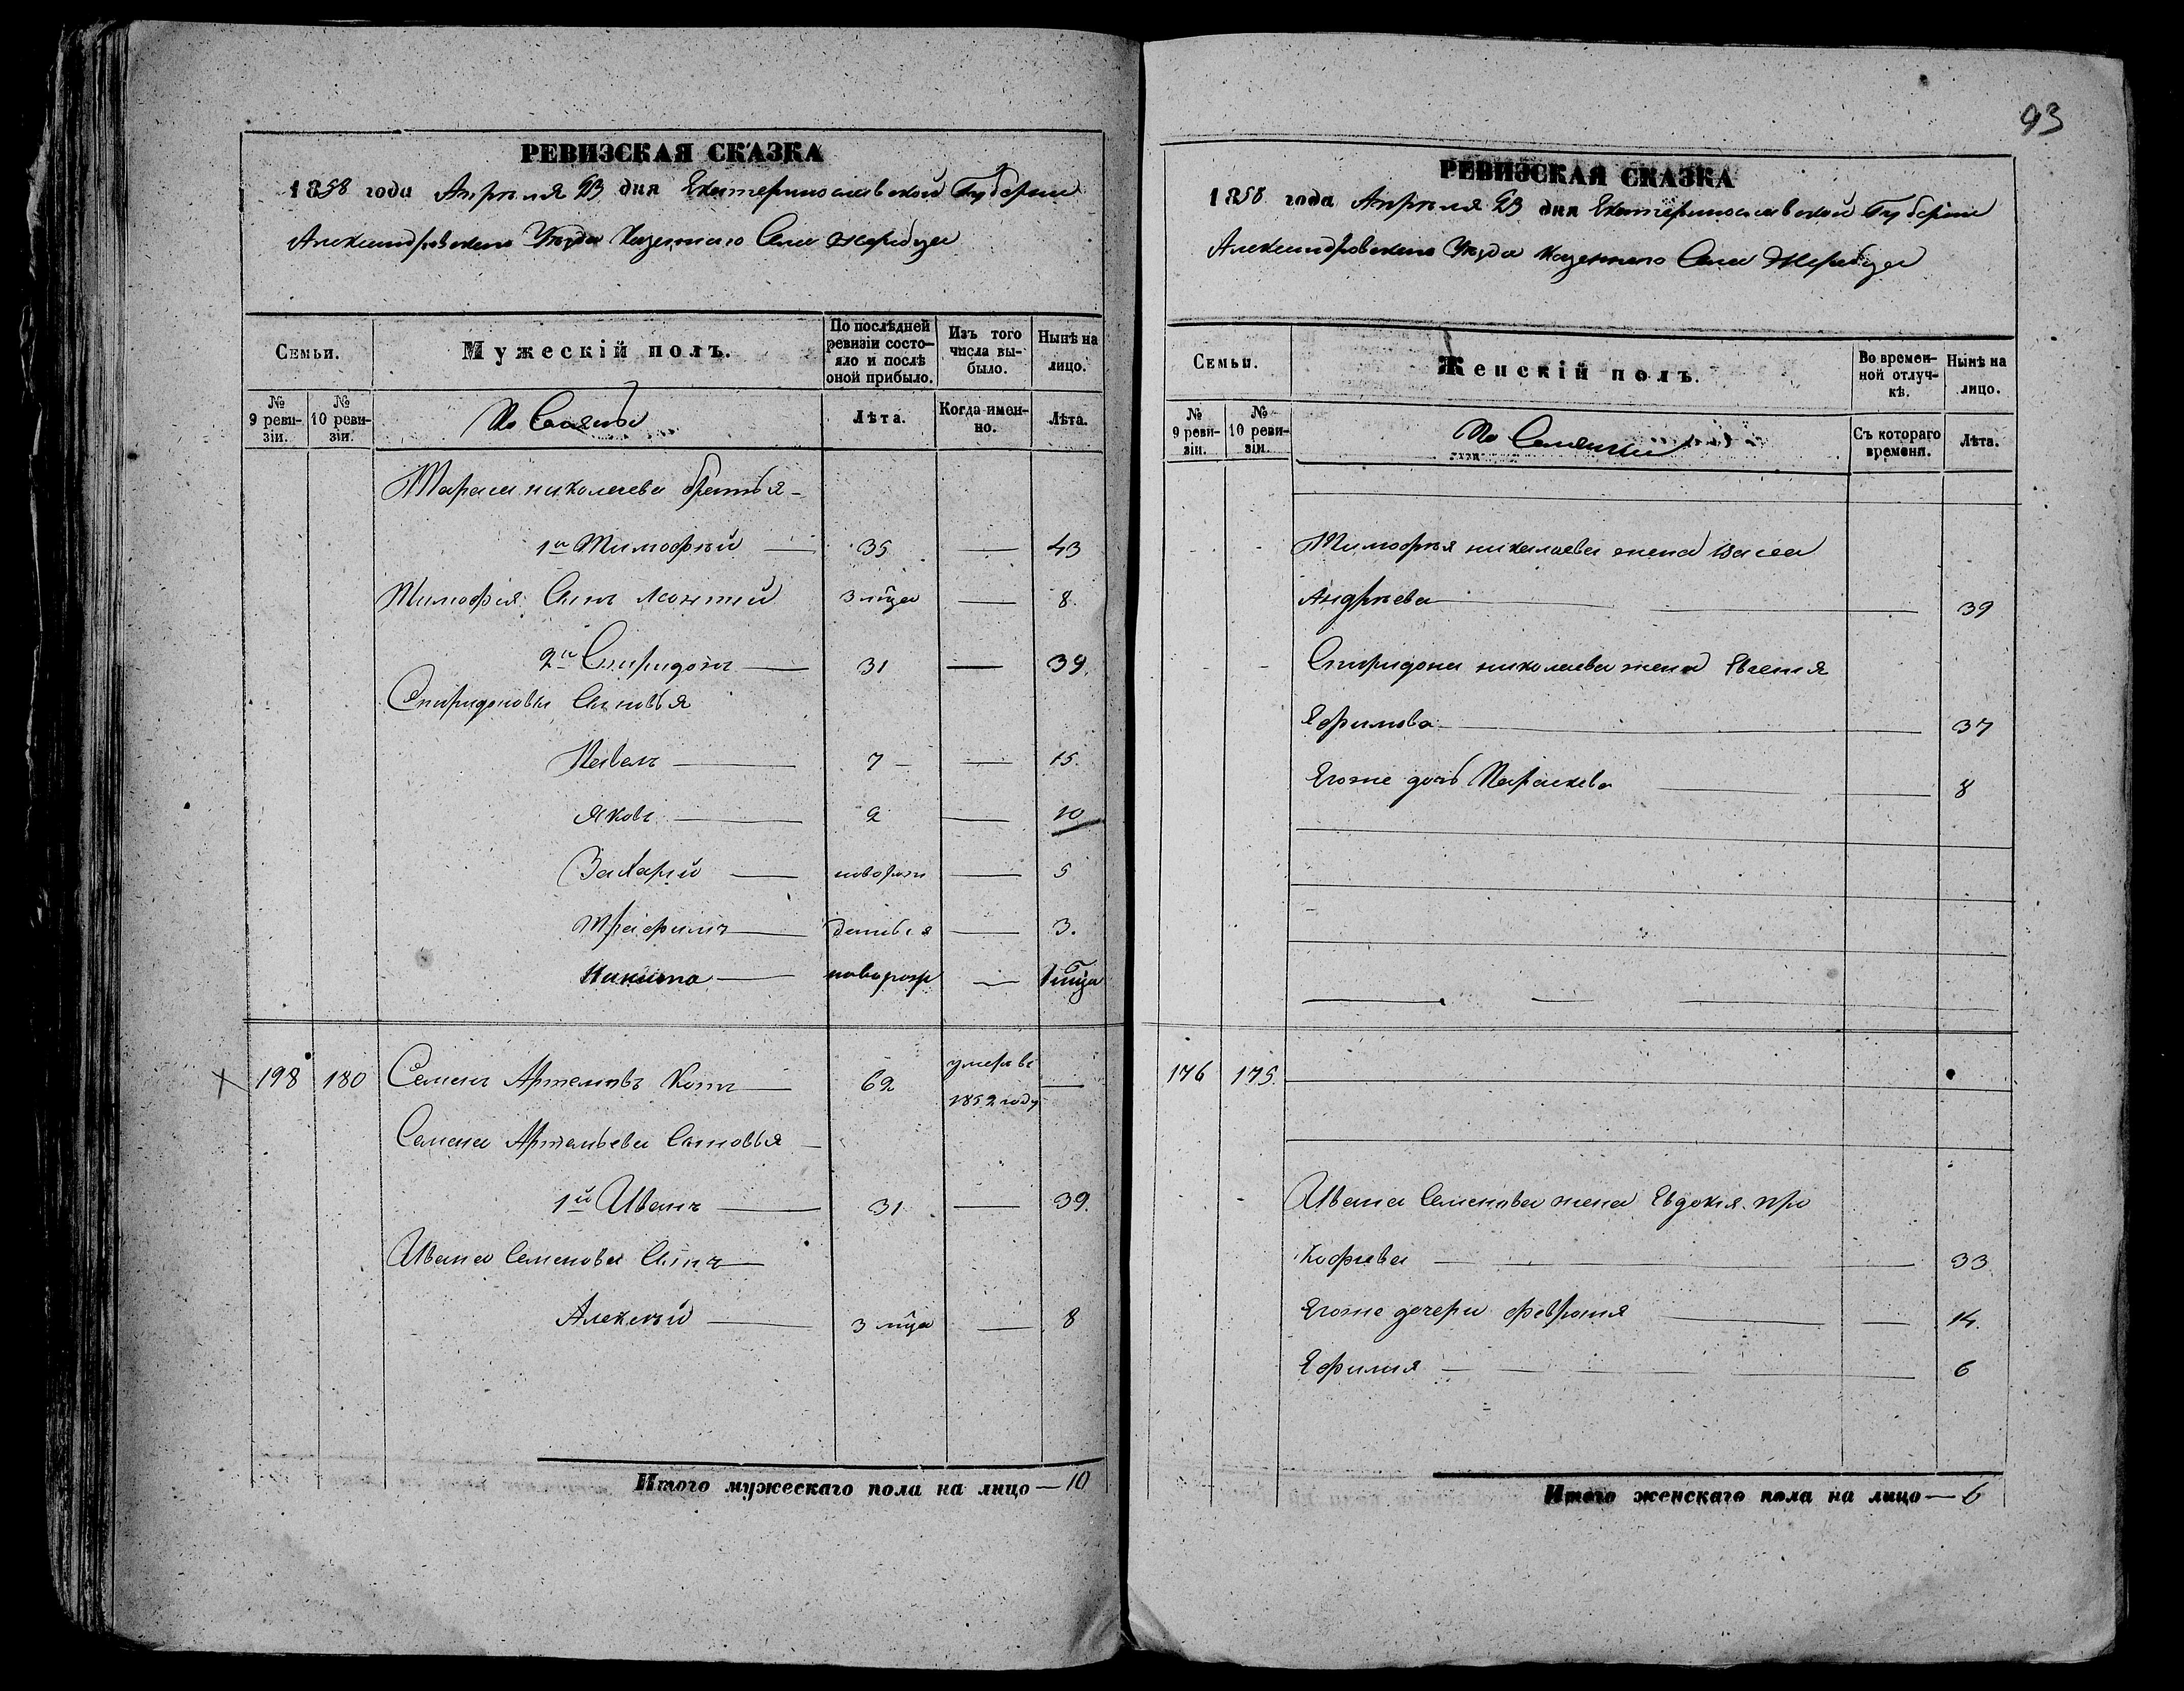 93
РЕВИЗСКАЯ СКАЗКА
1858 года Апреля 23 дня Екатеринославской Губернии
Александровского Уезда Казенного Села Жеребца
Семьи.
Мужескій полъ.
По послѣдней ревизіи состояло и послѣ оной прибыло.
Изъ того числа выбыло.
Нынѣ на лицо.
№ 9 ревизіи.
№ 10 ревизіи.
Лѣта.
Когда именно.
Лѣта.
Тараса николаева братья —
1й Тимофѣй — 35 — 43
Тимофея Сынъ Леонтий 3 м̃ца — 8
2й Спиридонъ — 31 — 39.
Спиридоновы Сыновья
Павелъ — 7 — — 15.
Яковъ — 2 — 10
Захарий — новорож — 5
Трафимъ — — 3.
Никита — новорож — 1 мц̃а
198 180 Семенъ Артемовъ Котъ — 62 умеръ въ 1852 году —
Семена Артемьева Сыновья —
1й Иванъ — 31 — 39.
Ивана Семенова Сынъ —
Алексѣй — 3 м̃ца — 8
Итого мужескаго пола на лицо — 10
РЕВИЗСКАЯ СКАЗКА
1858 года Апреля 23 дня Екатеринославской Губернии
Александровского Уезда Казенного Села Жеребца
Семьи.
Женскій полъ.
Во временной отлучкѣ.
Нынѣ на лицо.
№ 9 ревизіи.
№ 10 ревизіи.
Съ котораго времени.
Лѣта.
Тимофея николаева жена Васса
Андреева — — — 39
Спиридона николаева жена Евгения
Яфимова — — 37
Егоже дочь Параскева — — 8
176 175.
Ивана Семенова жена Евдокия Про
кофиева — — — 33
Егоже дочери Феврония — — 14.
Яфимия — — — 6
Итого женскаго пола на лицо — 6